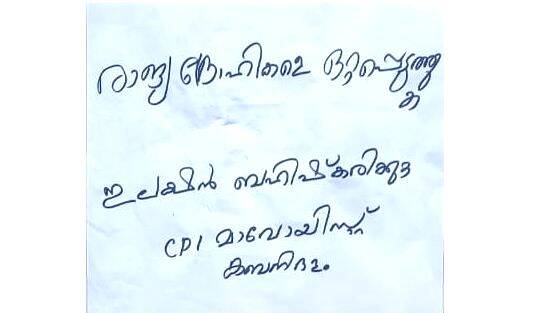 രാജ്യ ദ്രോഹികളെ ഒറ്റപ്പെടുത്തു
ക
ഇലക്ഷൻ ബഹിഷ്കരിക്കുക
CPI മാവോയിസ്റ്റ്
കബനിദളം